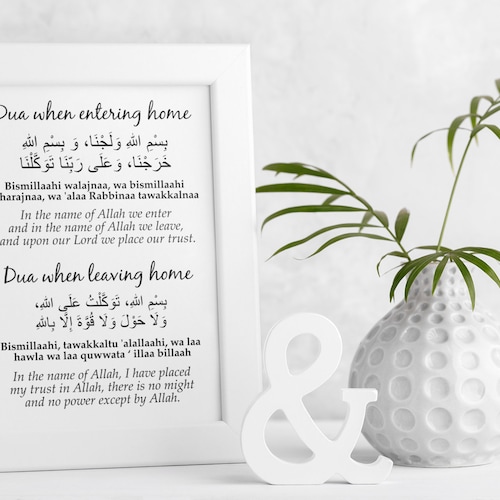 Dua when entering home
بِسْمِ اللهِ وَلَجْنَا، وَ بِسْمِ اللهِ
خَرَجْنَا، وَعَلَى رَبِّنَا تَوَكَّلْنَا
Bismillaahi walajnaa, wa bismillaahi
kharajnaa, wa 'alaa Rabbinaa tawakkalnaa
In the name of Allah we enter
and in the name of Allah we leave,
and upon our Lord we place our trust.
Dua when leaving home
بِسْمِ اللهِ، تَوَكَّلْتُ عَلَى اللهِ،
وَلَا حَوْلَ وَلَا قُوَّةَ إِلَّا بِاللهِ
Bismillaahi, tawakkaltu 'alallaahi, wa laa
hawla wa laa quwwata ' illaa billaah
In the name of Allah, I have placed
my trust in Allah, there is no might
and no power except by Allah.
&